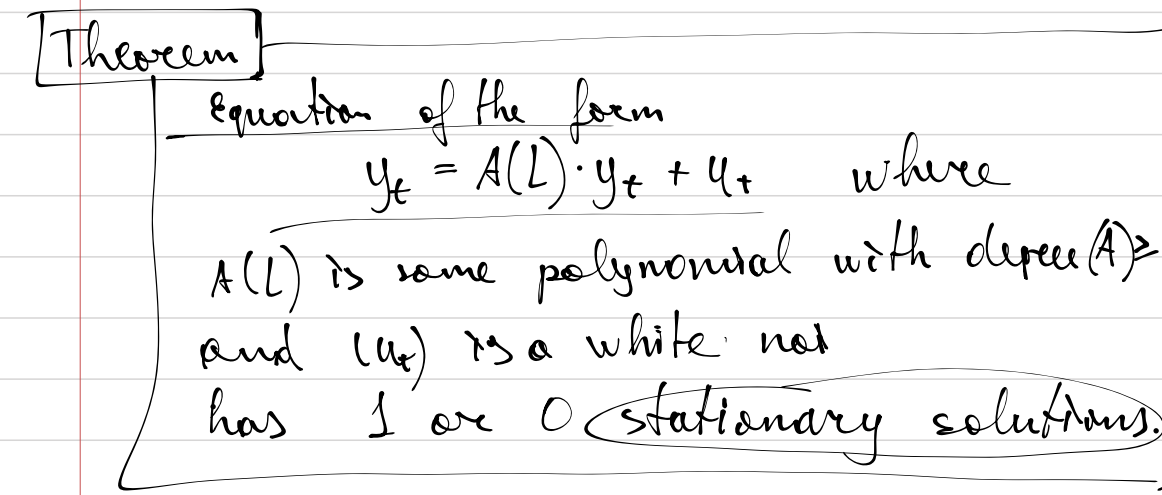 Theorem
Equation of the form
y_t = A(L)·y_t + u_t where
A(L) is some polynomial with degree(A)≥
and (u_t) is a white noi
has 1 or 0 stationary solutions.